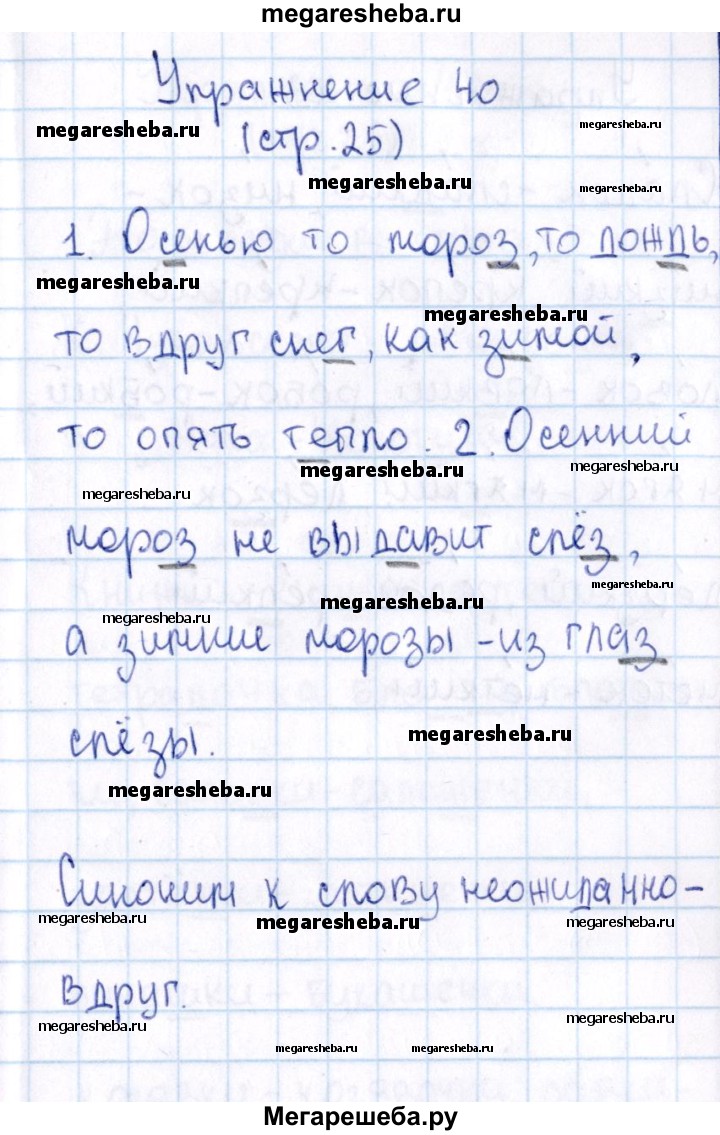 megaresheba.ru
Упражнение 40
megaresheba.ru megaresheba.ru
(стр.25)
megaresheba.ru megaresheba.ru
1. Осенью то мороз, то дождь,
megaresheba.ru
megaresheba.ru
то вдруг снег, как зимой,
то опять тепло. 2. Осенний
megaresheba.ru megaresheba.ru
megaresheba.ru
мороз не выдавит слёз,
megaresheba.ru
megaresheba.ru
megaresheba.ru
а зимние морозы - из глаз
megaresheba.ru
слёзы.
megaresheba.ru
Синоним к слову неожиданно-
megaresheba.ru megaresheba.ru megaresheba.ru
вдруг.
megaresheba.ru megaresheba.ru
megaresheba.ru megaresheba.ru
Мегарешеба.ру